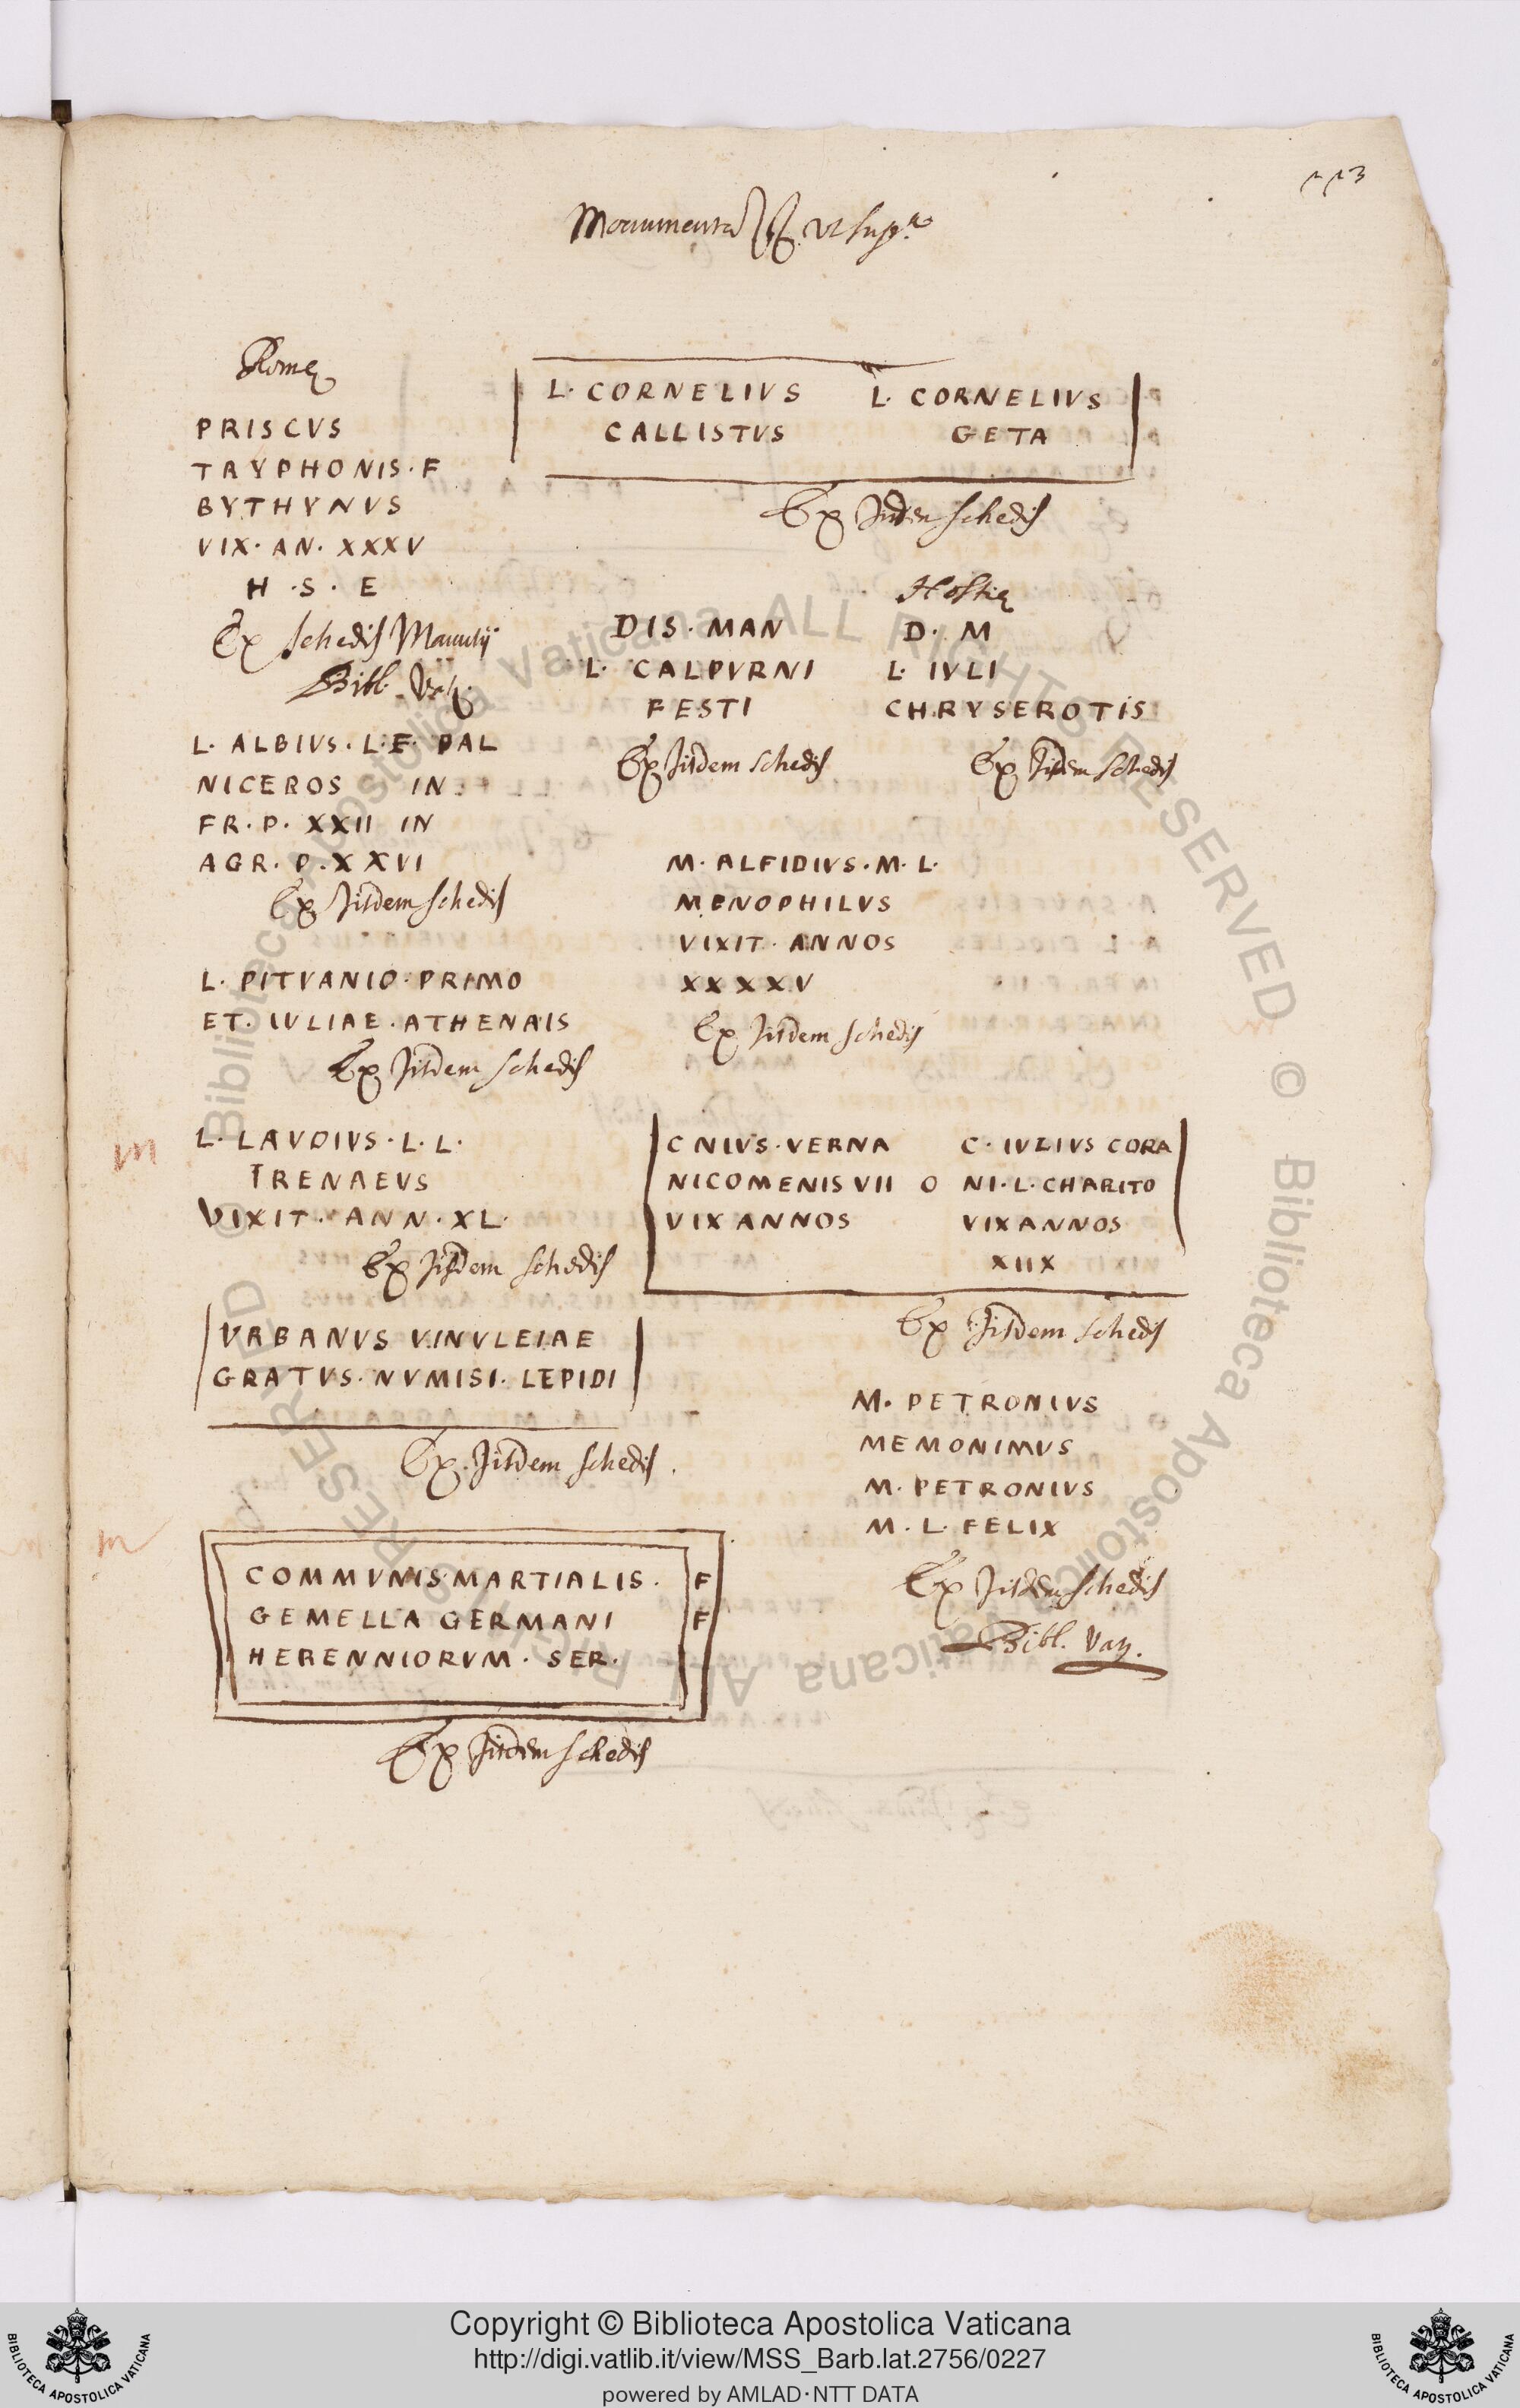 113
Monumenta &c. ut sup.ª
Romę
PRISCVS
TRYPHONIS·F
BYTHYNVS
VIX·AN·XXXV
H·S·E
Ex schedis Manutij
Bibl. Vat.
L·ALBIVS·L·E·PAL
NICEROS IN
FR·P·XXII IN
AGR·P·XXVI
Ex Jisdem schedis
L·PITVANIO·PRIMO
ET·IVLIAE·ATHENAIS
Ex Jisdem schedis
m
L·LAVDIVS·L·L·
IRENAEVS
VIXIT·ANN·XL·
Ex Jisdem schedis
VRBANVS VINVLEIAE
GRATVS·NVMISI·LEPIDI
Ex Jisdem schedis.
m
COMMVNIS·MARTIALIS· F
GEMELLA GERMANI F
HERENNIORVM·SER·
Ex Jisdem schedis
L·CORNELIVS L·CORNELIVS
CALLISTVS GETA
Ex Jisdem schedis
DIS·MAN
L·CALPVRNI
FESTI
Ex Jisdem schedis
Hostię
D·M
L·IVLI
CHRYSEROTIS
Ex Jisdem schedis
M·ALFIDIVS·M·L·
MENOPHILVS
VIXIT·ANNOS
XXXXV
Ex Jisdem schedis
CNIVS·VERNA C·IVLIVS CORA
NICOMENIS VII O NI·L·CHARITO
VIX ANNOS VIX ANNOS
XIIX
Ex Jisdem schedis
M·PETRONIVS
MEMONIMVS
M·PETRONIVS
M·L·FELIX
Ex Jisdem schedis
Bibl. Vat.
© Biblioteca Apostolica Vaticana ALL RIGHTS RESERVED © Biblioteca Apostolica Vaticana ALL RIGHTS RESERVED
Copyright © Biblioteca Apostolica Vaticana
http://digi.vatlib.it/view/MSS_Barb.lat.2756/0227
powered by AMLAD·NTT DATA
BIBLIOTECA APOSTOLICA VATICANA
BIBLIOTECA APOSTOLICA VATICANA